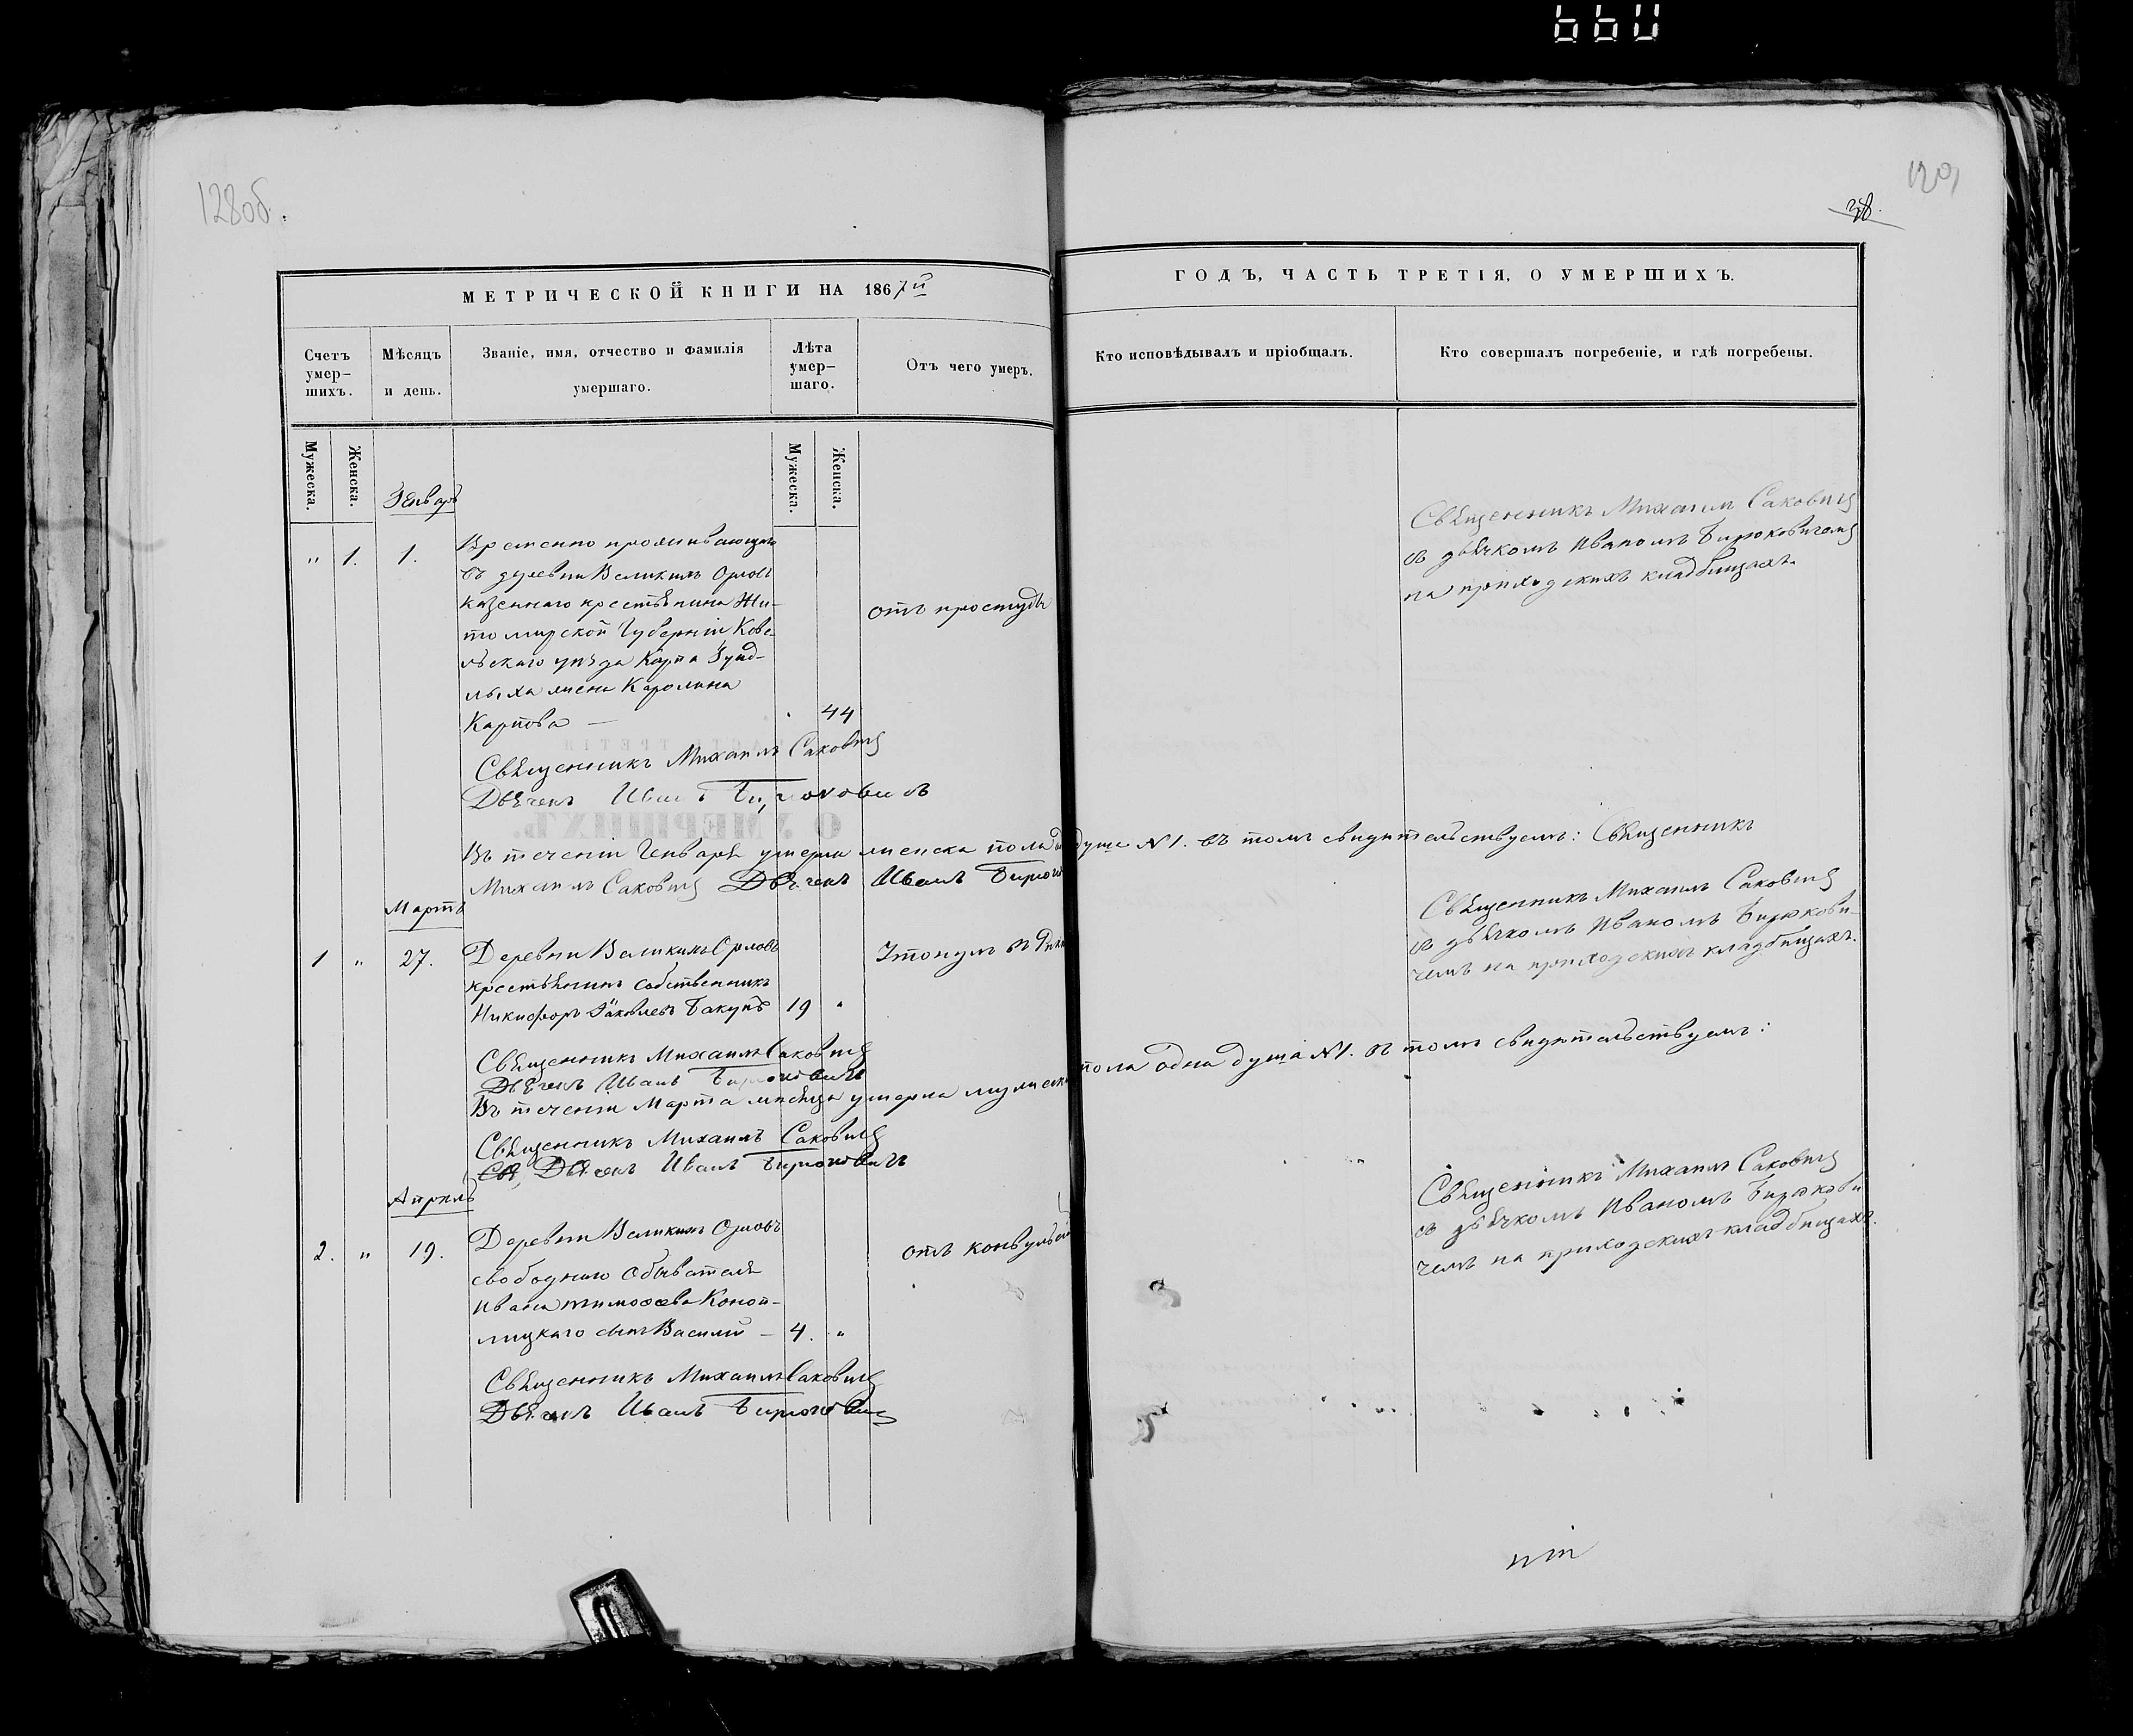 660
128об.
129
38.
МЕТРИЧЕСКОЙ КНИГИ НА 1867й
ГОДЪ, ЧАСТЬ ТРЕТІЯ, О УМЕРШИХЪ.
Счетъ умер-шихъ.
Мѣсяцъ и день.
Званіе, имя, отчество и фамилія умершаго.
Лѣта умер-шаго.
Отъ чего умеръ.
Кто исповѣдывалъ и пріобщалъ.
Кто совершалъ погребеніе, и гдѣ погребены.
Мужеска.
Женска.
Мужеска.
Женска.
Генварь
" 1. 1.
Временно проживающаго
въ деревни Великихъ Орловъ
казеннаго крестьянина Жи-
томирской Губерніи Кове-
льскаго уѣзда Карпа
жена Каролина
Карпова — 44
отъ простуды
Священникъ Михаилъ Саковичъ
съ дьячкомъ Иваномъ Бирюковичемъ
на приходскихъ кладбищахъ.
Священникъ Михаилъ Саковичъ
Дьячекъ Иванъ Бирюковичъ
Въ теченіи Генваря умерли женска пола душе №1. въ томъ свидѣтельствуемъ: Священникъ
Михаилъ Саковичъ Дьячекъ Иванъ
Мартъ
1 " 27.
Деревни Великихъ Орловъ
крестьянинъ собственникъ
Никифоръ Яковлевъ Бакунъ 19 "
Утонулъ въ
Священникъ Михаилъ Саковичъ
съ дьячкомъ Иваномъ Бирюкови-
чемъ на приходскихъ кладбищахъ.
Священникъ Михаилъ Саковичъ
Дьячекъ Иванъ Бирюковичъ
Въ теченіи Марта мѣсяца умерла мужеска пола одна душа №1. въ томъ свидѣтельствуемъ:
Священникъ Михаилъ Саковичъ
Дьячекъ Иванъ Бирюковичъ
Апрель
2. " 19.
Деревни Великихъ Орловъ
свободнаго обывателя
Ивана Тимофеева Коноп-
лицкаго сынъ Василій — 4. "
отъ конвульсіи
Священникъ Михаилъ Саковичъ
съ дьячкомъ Иваномъ Бирюкови
чемъ на приходскихъ кладбищахъ.
Священникъ Михаилъ Саковичъ
Дьячекъ Иванъ Бирюковичъ